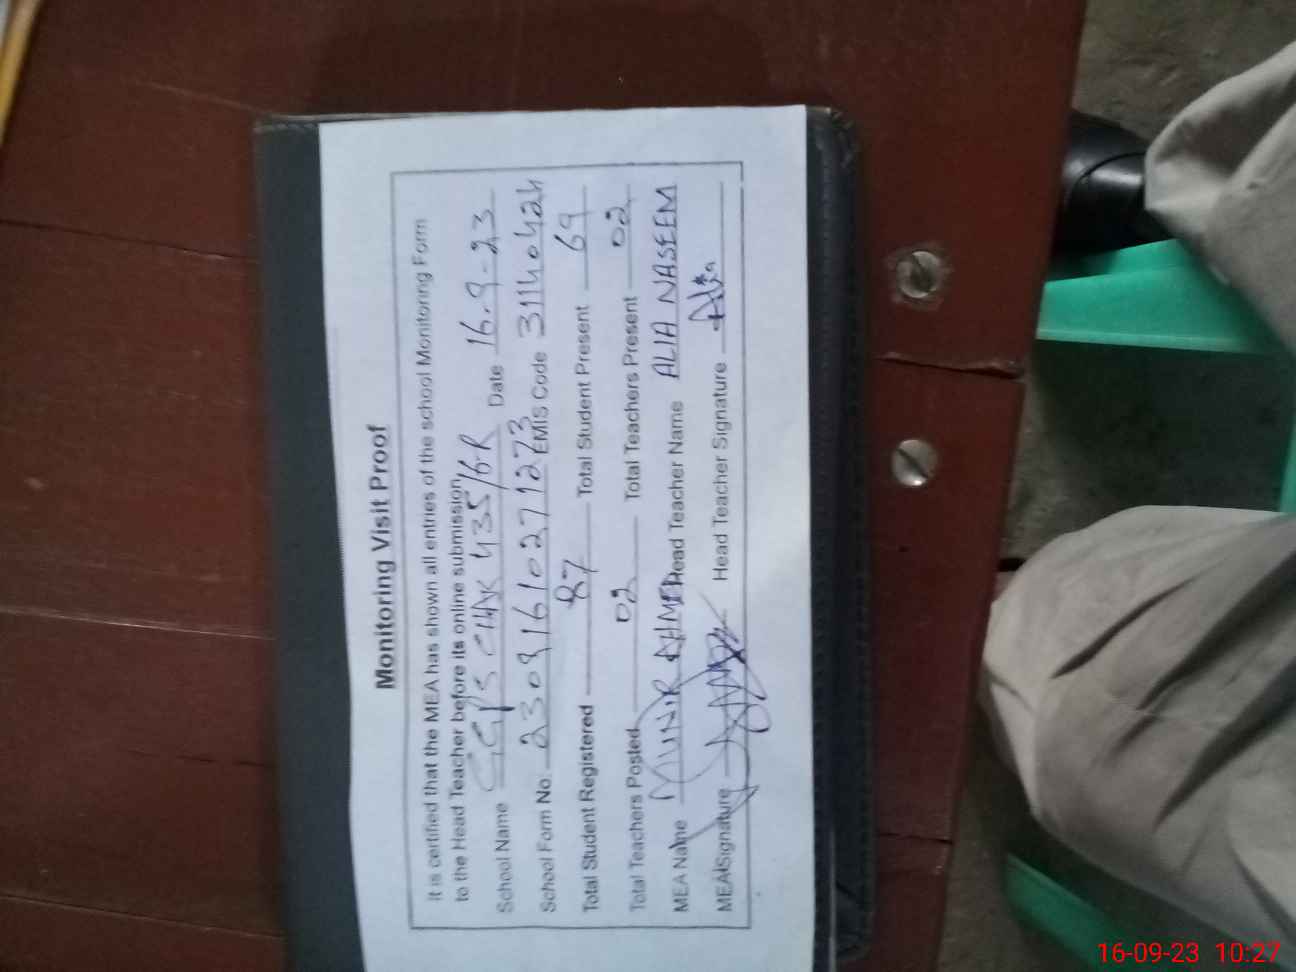 Monitoring Visit Proof
It is certified that the MEA has shown all entries of the school Monitoring Form
to the Head Teacher before its online submission.
School Name GGPS CHAK 435/6-R Date 16-9-23
School Form No. 23091610271273 EMIS Code 31140424
Total Student Registered 87 Total Student Present 69
Total Teachers Posted 02 Total Teachers Present 02
MEA Name MUNIR AHMED Head Teacher Name ALIA NASEEM
MEA Signature Head Teacher Signature Alia
16-09-23 10:27